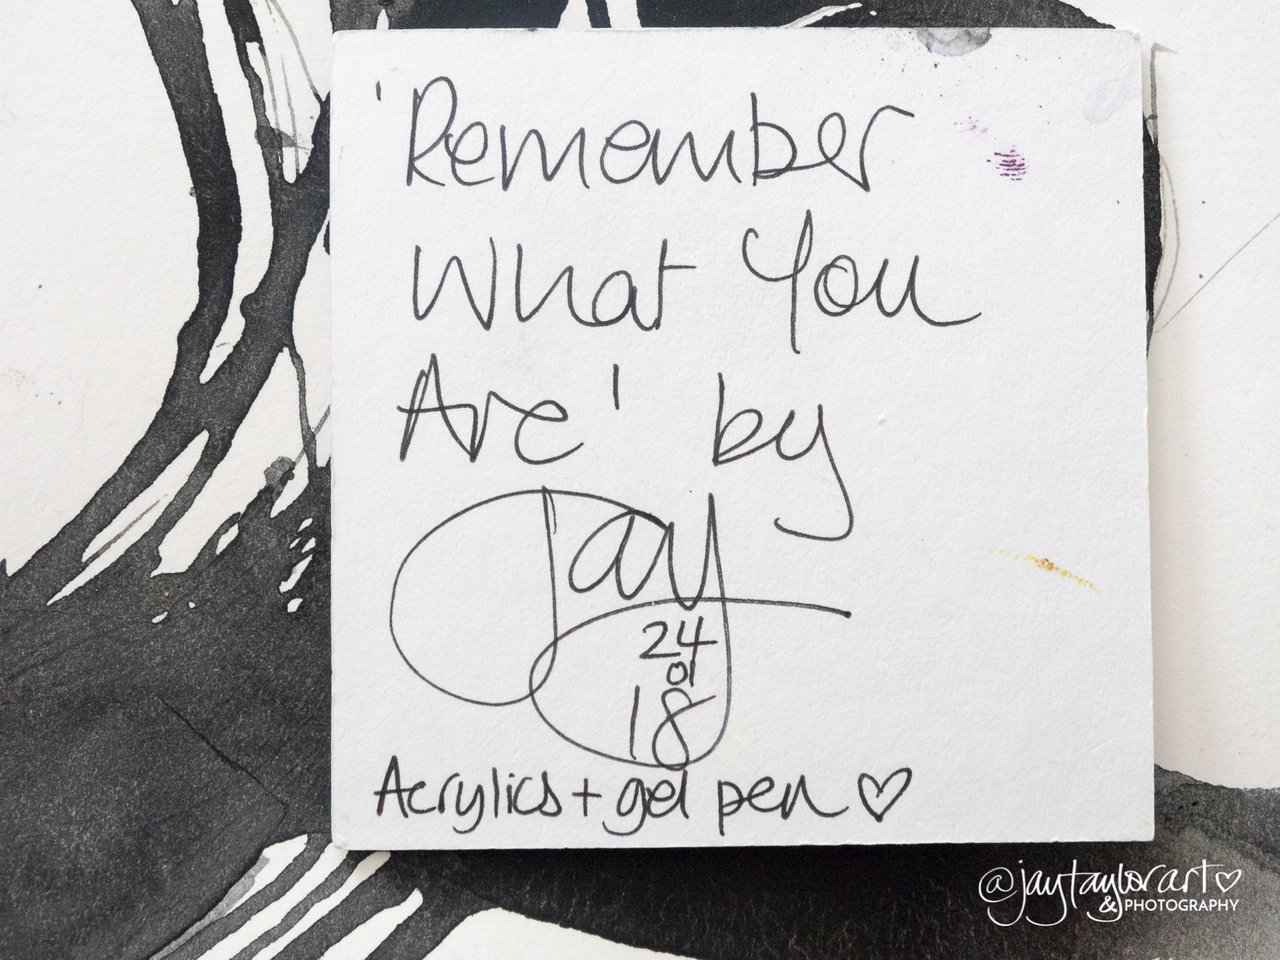 'Remember
What You
Are' by
Jay
24
01
18
Acrylics + gel pen ♡
@jaytaylorart♡
& PHOTOGRAPHY